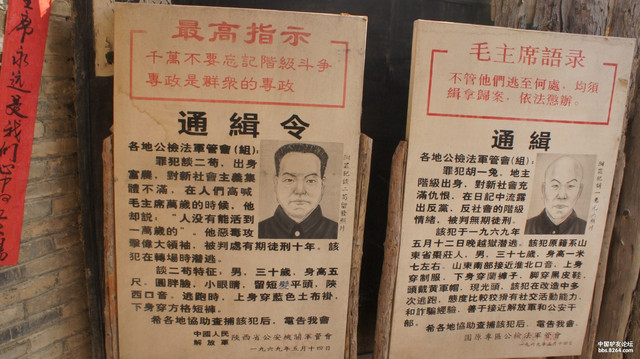 主席永远是我们心中
最高指示
千萬不要忘記階級斗争
專政是群衆的專政
通緝令
各地公檢法軍管會(組),
罪犯談二苟,出身
富農,對新社會主義集
體不滿,在人們高喊
毛主席萬歲的時候,他
却説,"人没有能活到
一萬歲的"。他惡毒攻
擊偉大領袖,被判處有期徒刑十年。該
犯在轉場時潜逃。
談二苟特征,男,三十歲,身高五
尺,圓胖臉,小眼睛,留短髮平頭,陝
西口音。逃跑時,上身穿藍色土布褂,
下身穿方格短褲。
希各地協助查捕該犯后,電告我會
中國人民
解放軍 陝西省公安機關軍管會
一九六九年五月十四日
毛主席語录
不管他們逃至何處,均須
緝拿歸案,依法懲辦。
通緝
各地公檢法軍管會(組),
罪犯胡一兔,地主
階級出身,對新社會充
滿仇恨,在日記中流露
出反黨,反社會的階級
情緒,被判無期徒刑。
該犯于一九六九年
五月十二日晚越獄潜逃。該犯原籍系山
東省棗莊人,男,三十七歲,身高一米
七左右。山東南部接近淮北口音,上身
穿制服,下身穿藍褲子,脚穿黑皮鞋,
頭戴黄軍帽,現光頭,該犯在改造中多
次逃跑,態度比較狡猾有社交活動能力,
和詐騙經驗,善于接近解放軍和公安干
部。
希各地協助查捕該犯后,電告我會。
固原專區公檢法軍管會
中国驴友论坛
bbs.8264.com